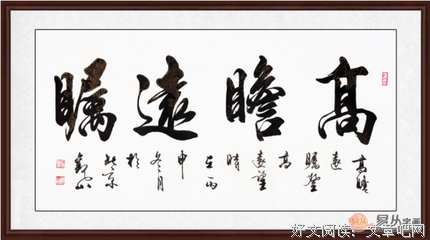 高瞻遠矚
高瞻遠矚登高遠望時在丙申冬月於北京
易从字画
好文阅读：文章吧网